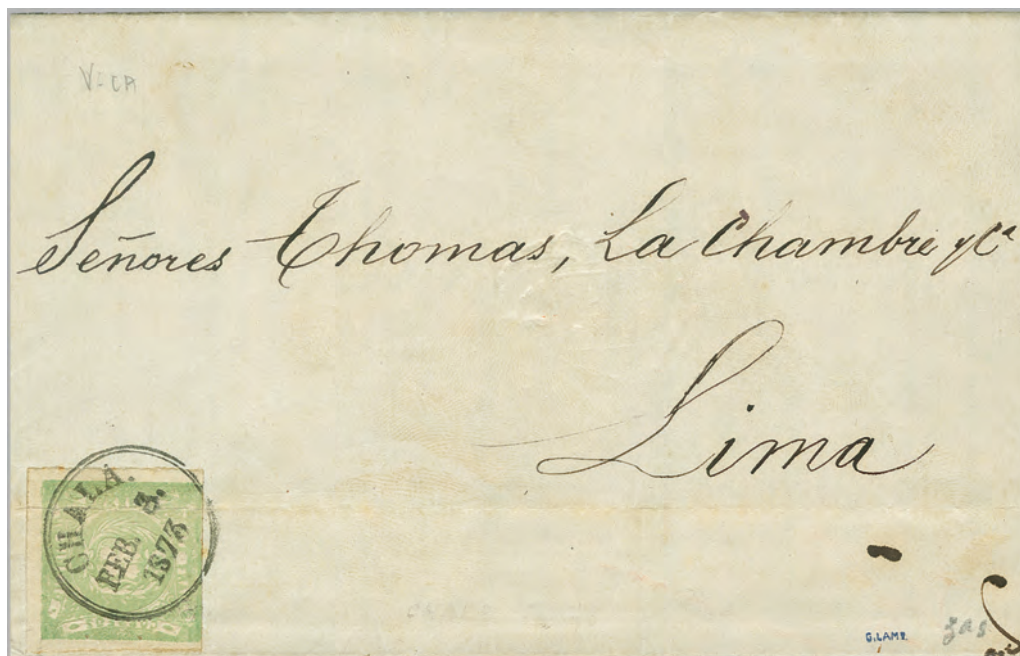 Señores Thomas, La Chambre y Cª
Lima
CHALA.
FEB. 3.
1873
G.LAMY.